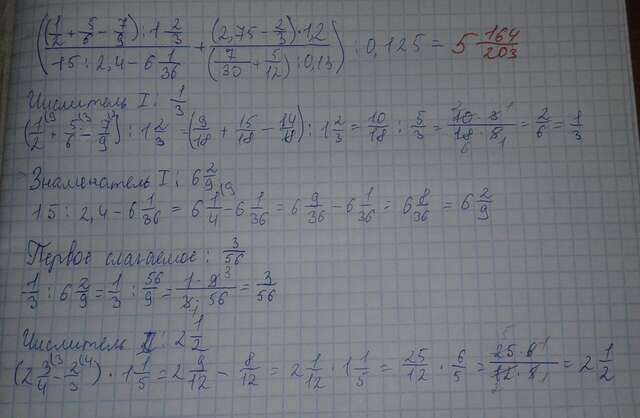 ((1/2 + 5/6 − 7/9) : 1 2/3 / 15 : 2,4 − 6 1/36 + (2,75 − 2/3) · 1,2 / (7/30 + 5/12) : 0,13) : 0,125 = 5 164/203
Числитель I : 1/3
(1/2 + 5/6 − 7/9) : 1 2/3 = (9/18 + 15/18 − 14/18) : 1 2/3 = 10/18 : 5/3 = 10 · 3 / 18 · 5 = 2/6 = 1/3
Знаменатель I : 6 2/9
15 : 2,4 − 6 1/36 = 6 1/4 − 6 1/36 = 6 9/36 − 6 1/36 = 6 8/36 = 6 2/9
Первое слагаемое : 3/56
1/3 : 6 2/9 = 1/3 : 56/9 = 1 · 9 / 3 · 56 = 3/56
Числитель II : 2 1/2
(2 3/4 − 2/3) · 1 1/5 = 2 9/12 − 8/12 = 2 1/12 · 1 1/5 = 25/12 · 6/5 = 25 · 6 / 12 · 5 = 2 1/2